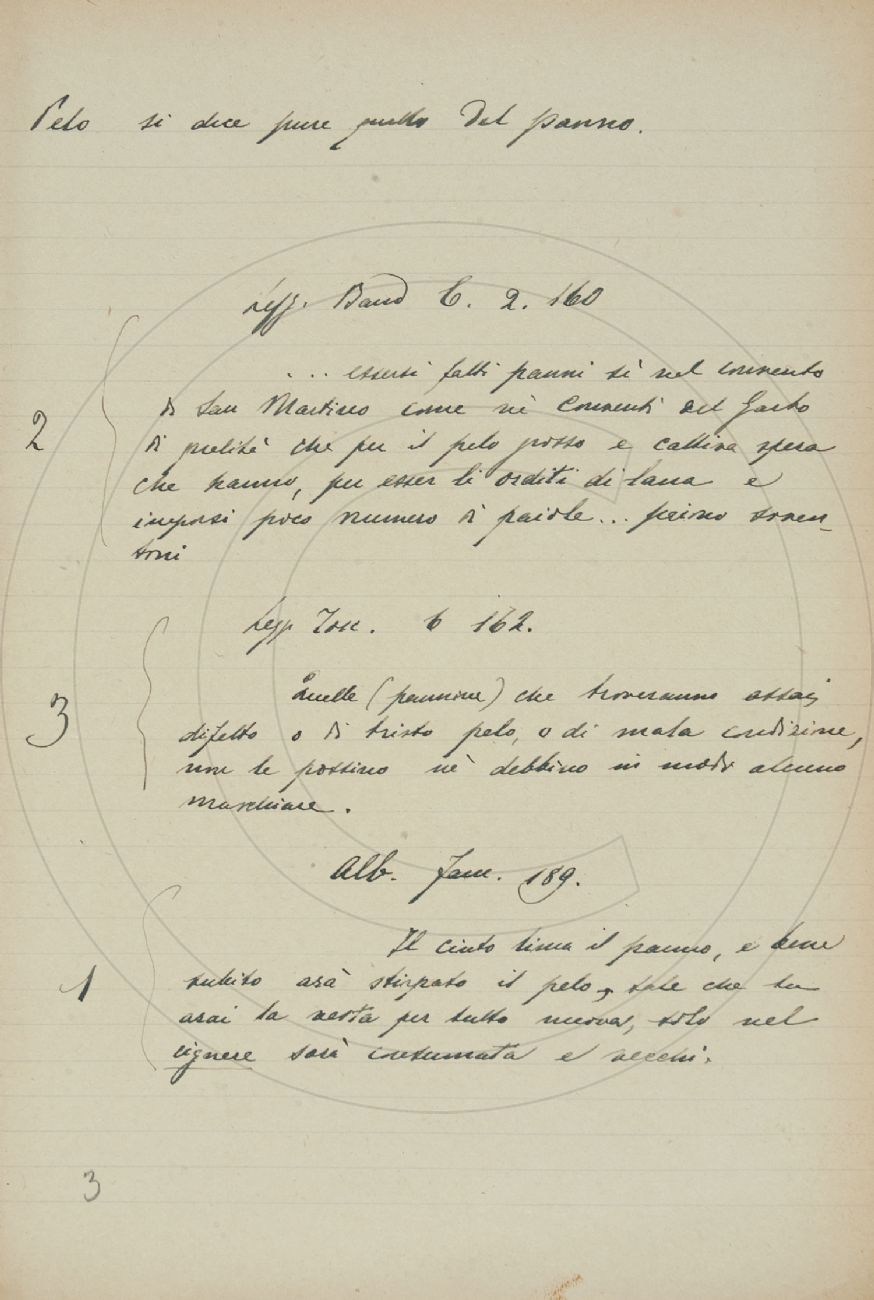 Pelo si dice pure quello del panno.
Legg. Band C. 2. 160
2
... essersi fatti panni sì nel convento
di San Martino come nè Conventi del Garbo
di qualità che per il pelo grosso e cattiva spera
che hanno, per esser li orditi di lana e
imporsi poco numero di paiole... sieno
Legg. Tosc. 6 162.
3
Quelle (pannine) che troveranno assai
difetto o di tristo pelo, o di mala condizione,
non le possino nè debbino in modo alcuno
marchiare.
Alb. Fam. 189.
1
Il cinto lima il panno, e bene
subito arà stirpato il pelo, tale che tu
arai la vesta per tutto nuova, solo nel
cignere sarà consumata e vecchi.
3